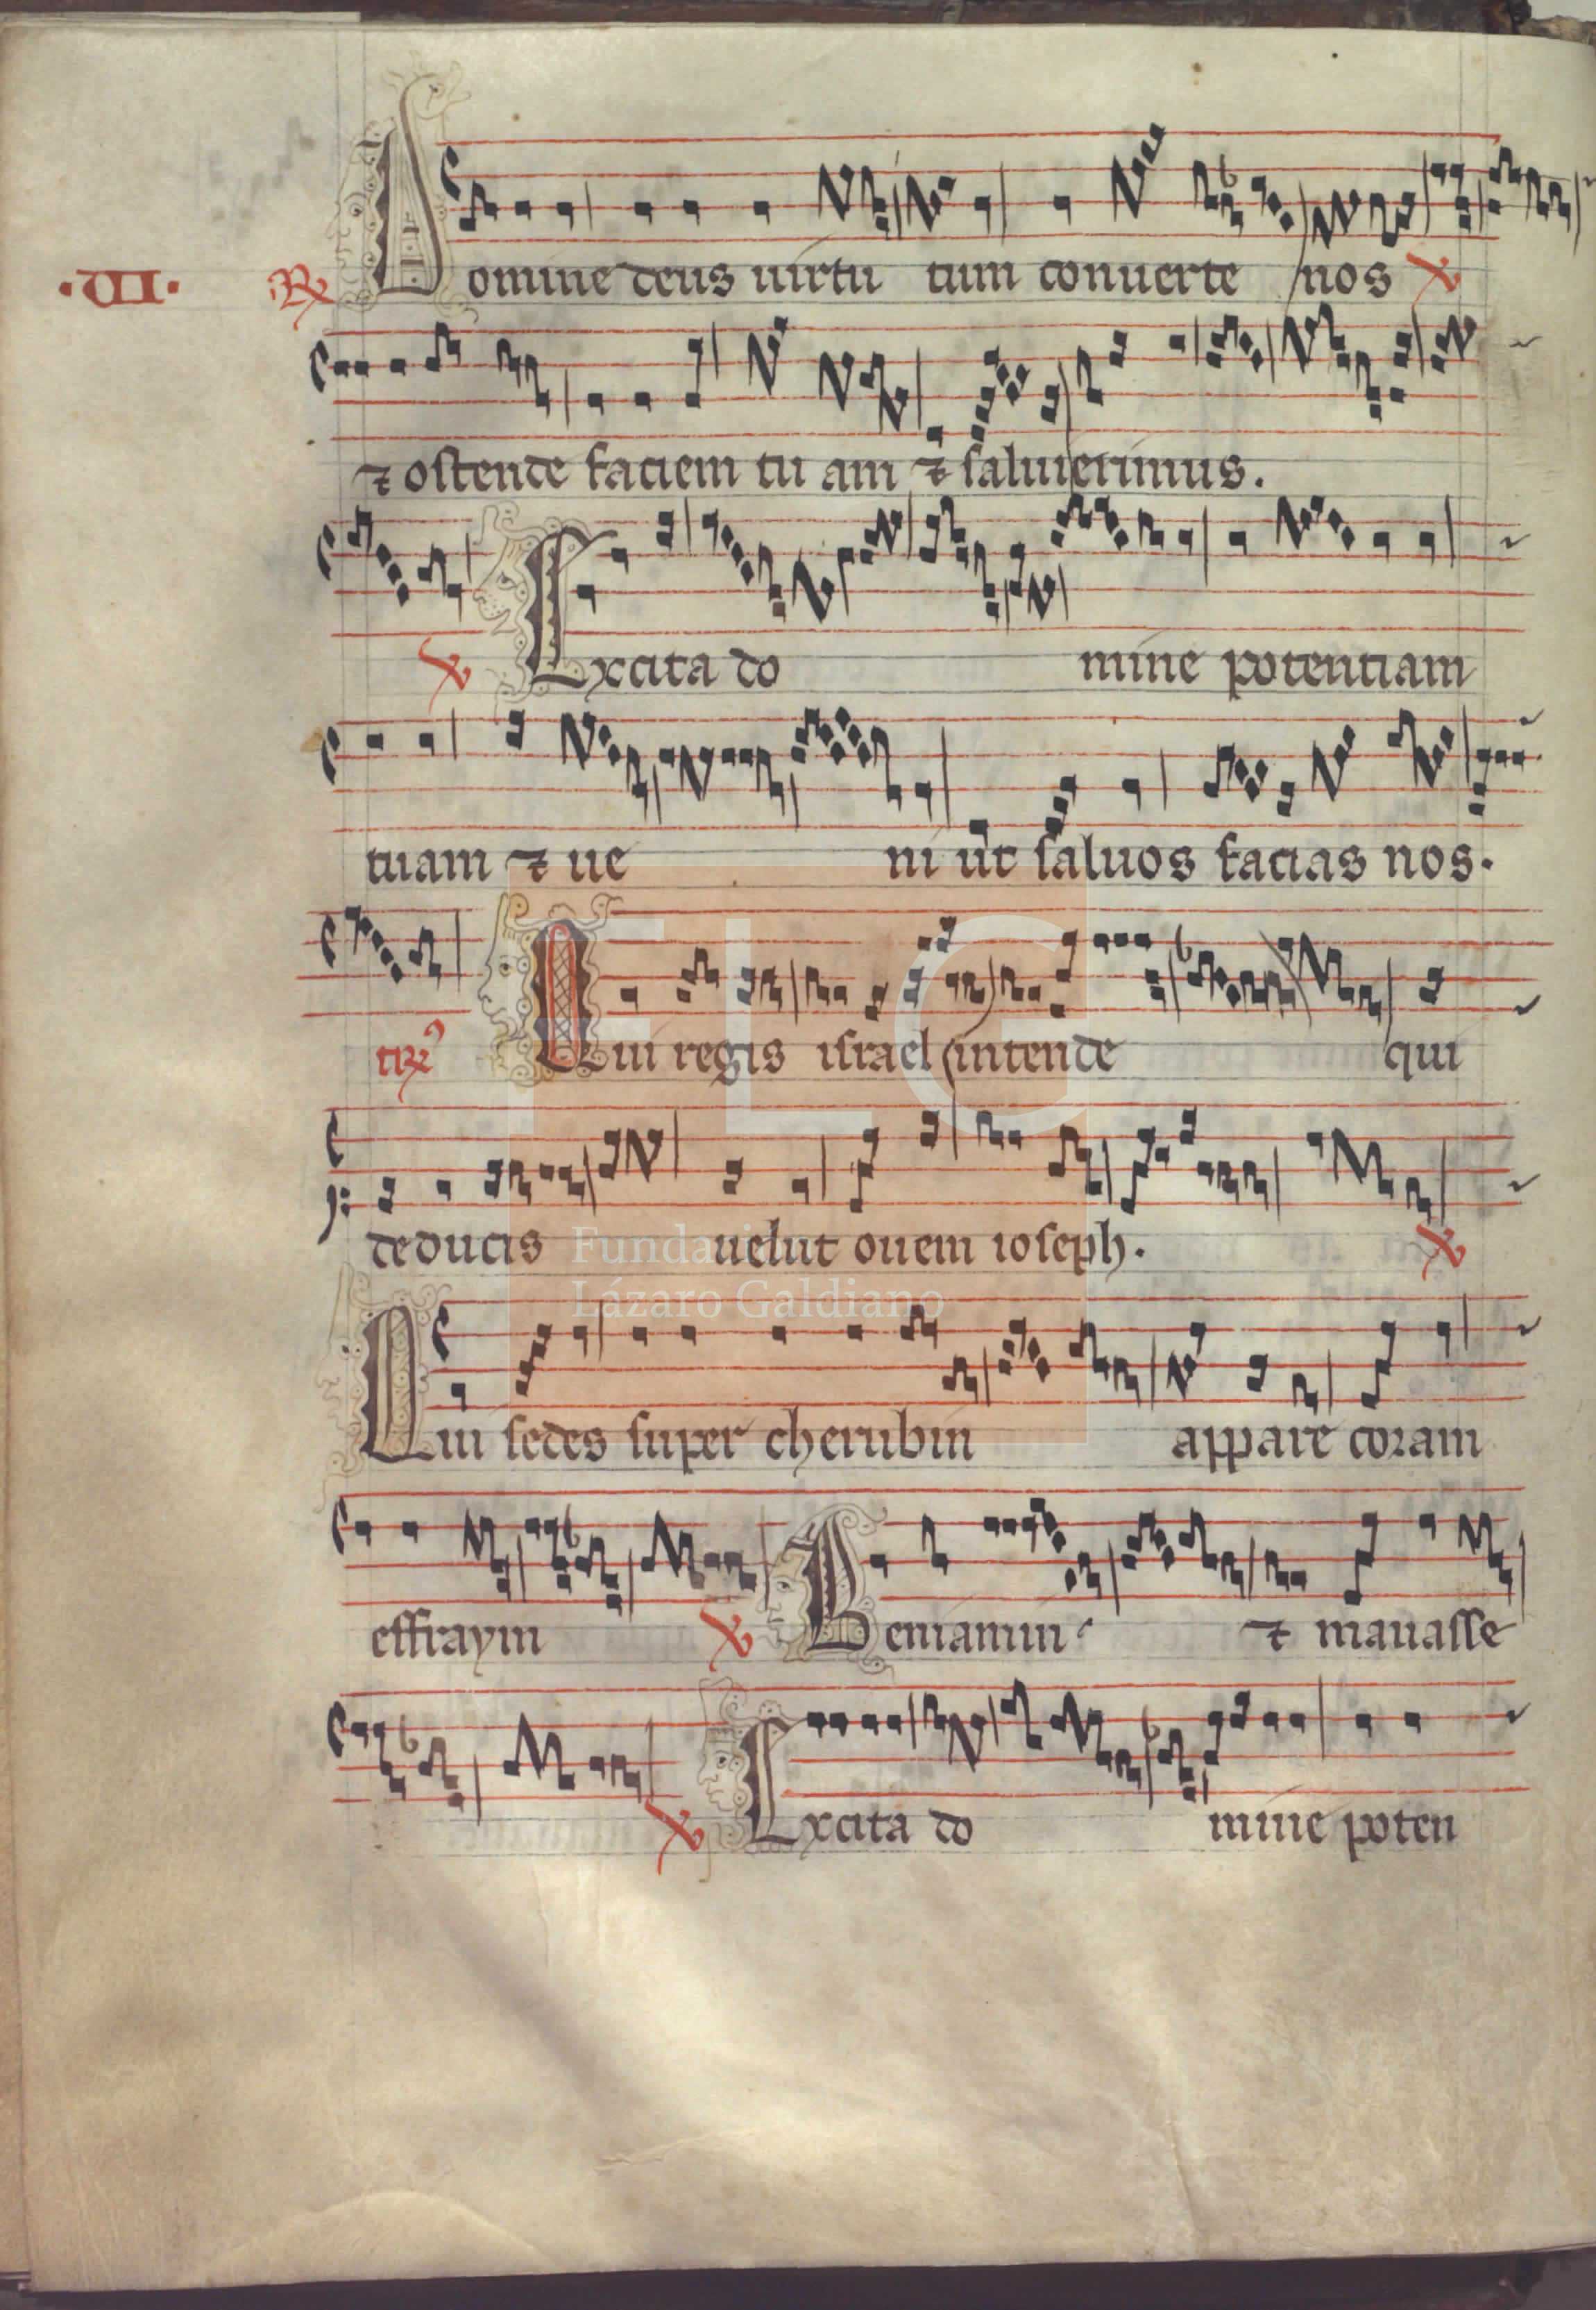 ·VI· R℣ Domine deus uirtu tum conuerte nos ℣
⁊ oſtende faciem tu am ⁊ ſaluierimus.
℣ Excita do mine potentiam
tuam ⁊ ue ni ut ſaluos facias nos.
Qui regis iſrael intende qui
deducis uelut ouem ioſeph. ℣
Qui ſedes ſuper cherubin appare coram
effraym ℣ Beniamin ⁊ manaſſe
℣ Excita do mine poten
FLG
Fundación
Lázaro Galdiano